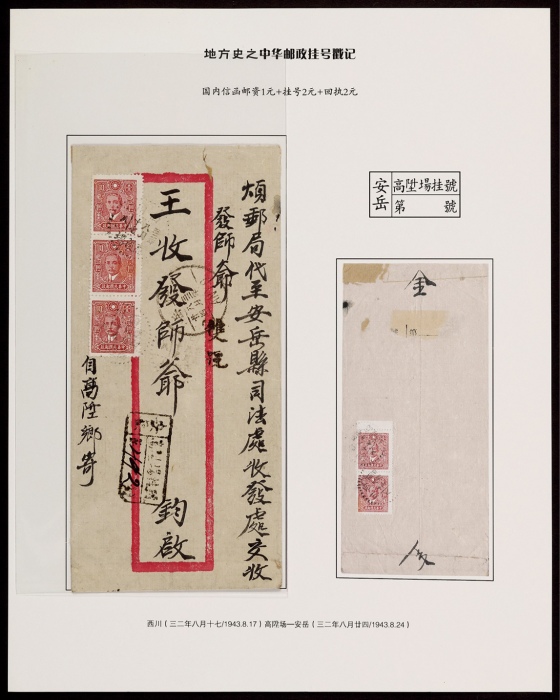 地方史之中华邮政挂号戳记
国内信函邮资1元+挂号2元+回执2元
煩郵局代至安岳縣司法處收發處交收
發師爺
王收發師爺 鈞啟
自高陞鄉寄
安岳
高陞場挂號
第 號
西川（三二年八月十七/1943.8.17）高陞场—安岳（三二年八月廿四/1943.8.24）